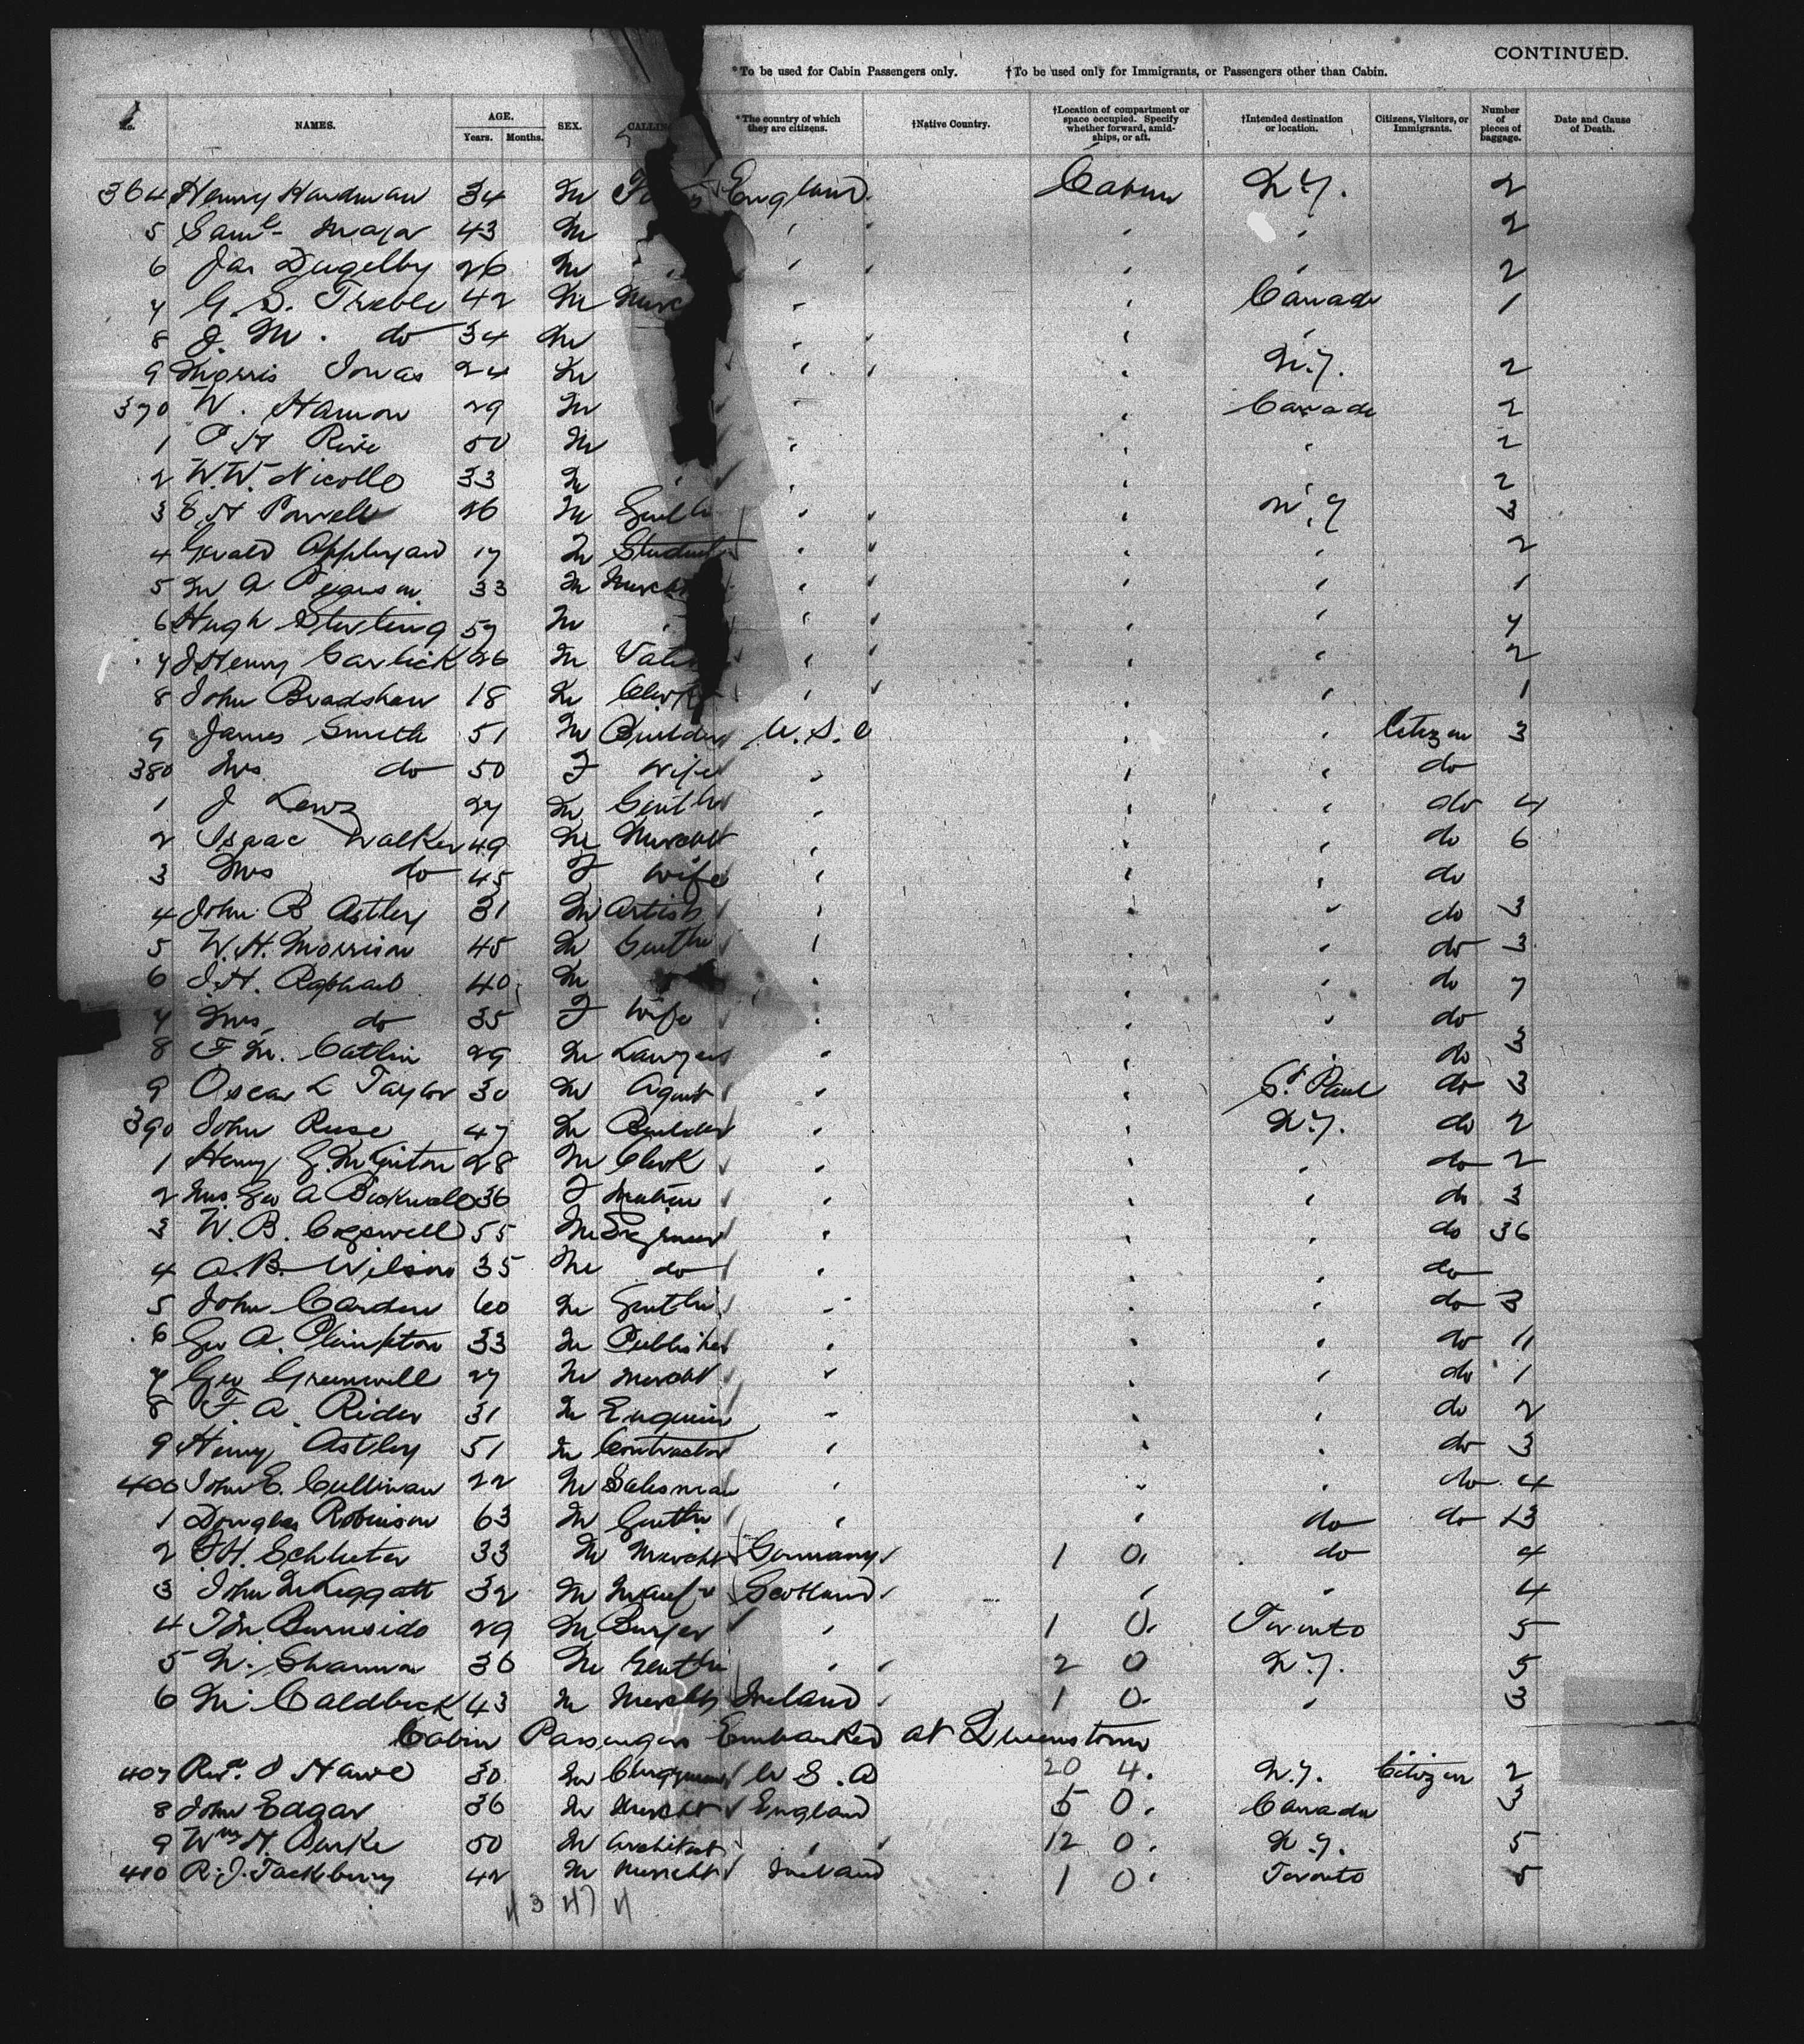 CONTINUED.
*To be used for Cabin Passengers only. †To be used only for Immigrants, or Passengers other than Cabin.
No. NAMES. AGE. Years. Months. SEX. CALLIN *The country of which they are citizens. †Native Country. †Location of compartment or space occupied. Specify whether forward, amidships, or aft. †Intended destination or location. Citizens, Visitors, or Immigrants. Number of pieces of baggage. Date and Cause of Death.
364 Henry Hardman 34 M England Cabin N.Y. 2
5 Saml Major 43 M " " " 2
6 Jas Dugelby 26 M " " " 2
7 G. S. Treble 42 M Merc " " Canada 1
8 J. M. do 34 M " " "
9 Morris Jonas 24 M " " N.Y. 2
370 W. Hamon 29 M " " Canada 2
1 P H Rive 50 M " " " 2
2 W. W. Nicolle 33 M " " " 2
3 E H Powell 26 M Gentln " " N.Y 3
4 Gerald Appleyard 17 M Student " " " 2
5 M A Pegerson 33 M Mercht " " " 1
6 Hugh Sterling 57 M " " " " 4
7 J Henry Garlick 26 M " " " 2
8 John Bradshaw 18 M Clerk " " " 1
9 James Smith 51 M Builder U. S. A " " Citizen 3
380 Mrs do 50 F Wife " " " do
1 J Lewz 27 M Gentln " " " do 4
2 Isaac Walker 49 M Mercht " " " do 6
3 Mrs do 45 F Wife " " " do
4 John B Astley 31 M Artist " " " do 3
5 W. H. Morrison 45 M Gentln " " " do 3
6 J. H. Raphael 40 M " " " do 7
7 Mrs do 35 F Wife " " " do
8 F. M. Catlin 29 M Lawyer " " " do 3
9 Oscar L Taylor 30 M Agent " " St. Paul do 3
390 John Ruse 47 M Builder " " N.Y. do 2
1 Henry G. McGinton 28 M Clerk " " " do 2
2 Mrs Geo A Bicknell 36 F Matron " " " do 3
3 W. B. Cogswell 55 M Engineer " " " do 36
4 A. B. Wilson 35 M do " " " do
5 John Carden 60 M Gentln " " " do 3
6 Geo A. Plimpton 33 M Publisher " " " do 11
7 Geo Greenwill 27 M Mercht " " " do 1
8 F. A. Rider 31 M Engineer " " " do 2
9 Henry Astley 51 M Contractor " " " do 3
400 John E. Cullinan 22 M Salesman " " " do 4
1 Douglas Robinson 63 M Gentln " " do do 13
2 J H. Schluter 33 M Mercht Germany 1 0. do 4
3 John McLeggatt 32 M Manufr Scotland " " 4
4 T M Burnside 29 M Buyer " 1 0. Toronto 5
5 N. Shannon 36 M Gentln " 2 0 N.Y. 5
6 M. Caldbeck 43 M Mercht Ireland 1 0. " 3
Cabin Passengers Embarked at Queenstown
407 Revd. J Hawe 30 M Clergyman U S. A 20 4. N.Y. Citizen 2
8 John Edgar 36 M Mercht England 5 0. Canada 3
9 Wm H. Burke 50 M Architect " 12 0. N.Y. 5
410 R. J. Tackbury 42 M Mercht Ireland 1 0. Toronto 5